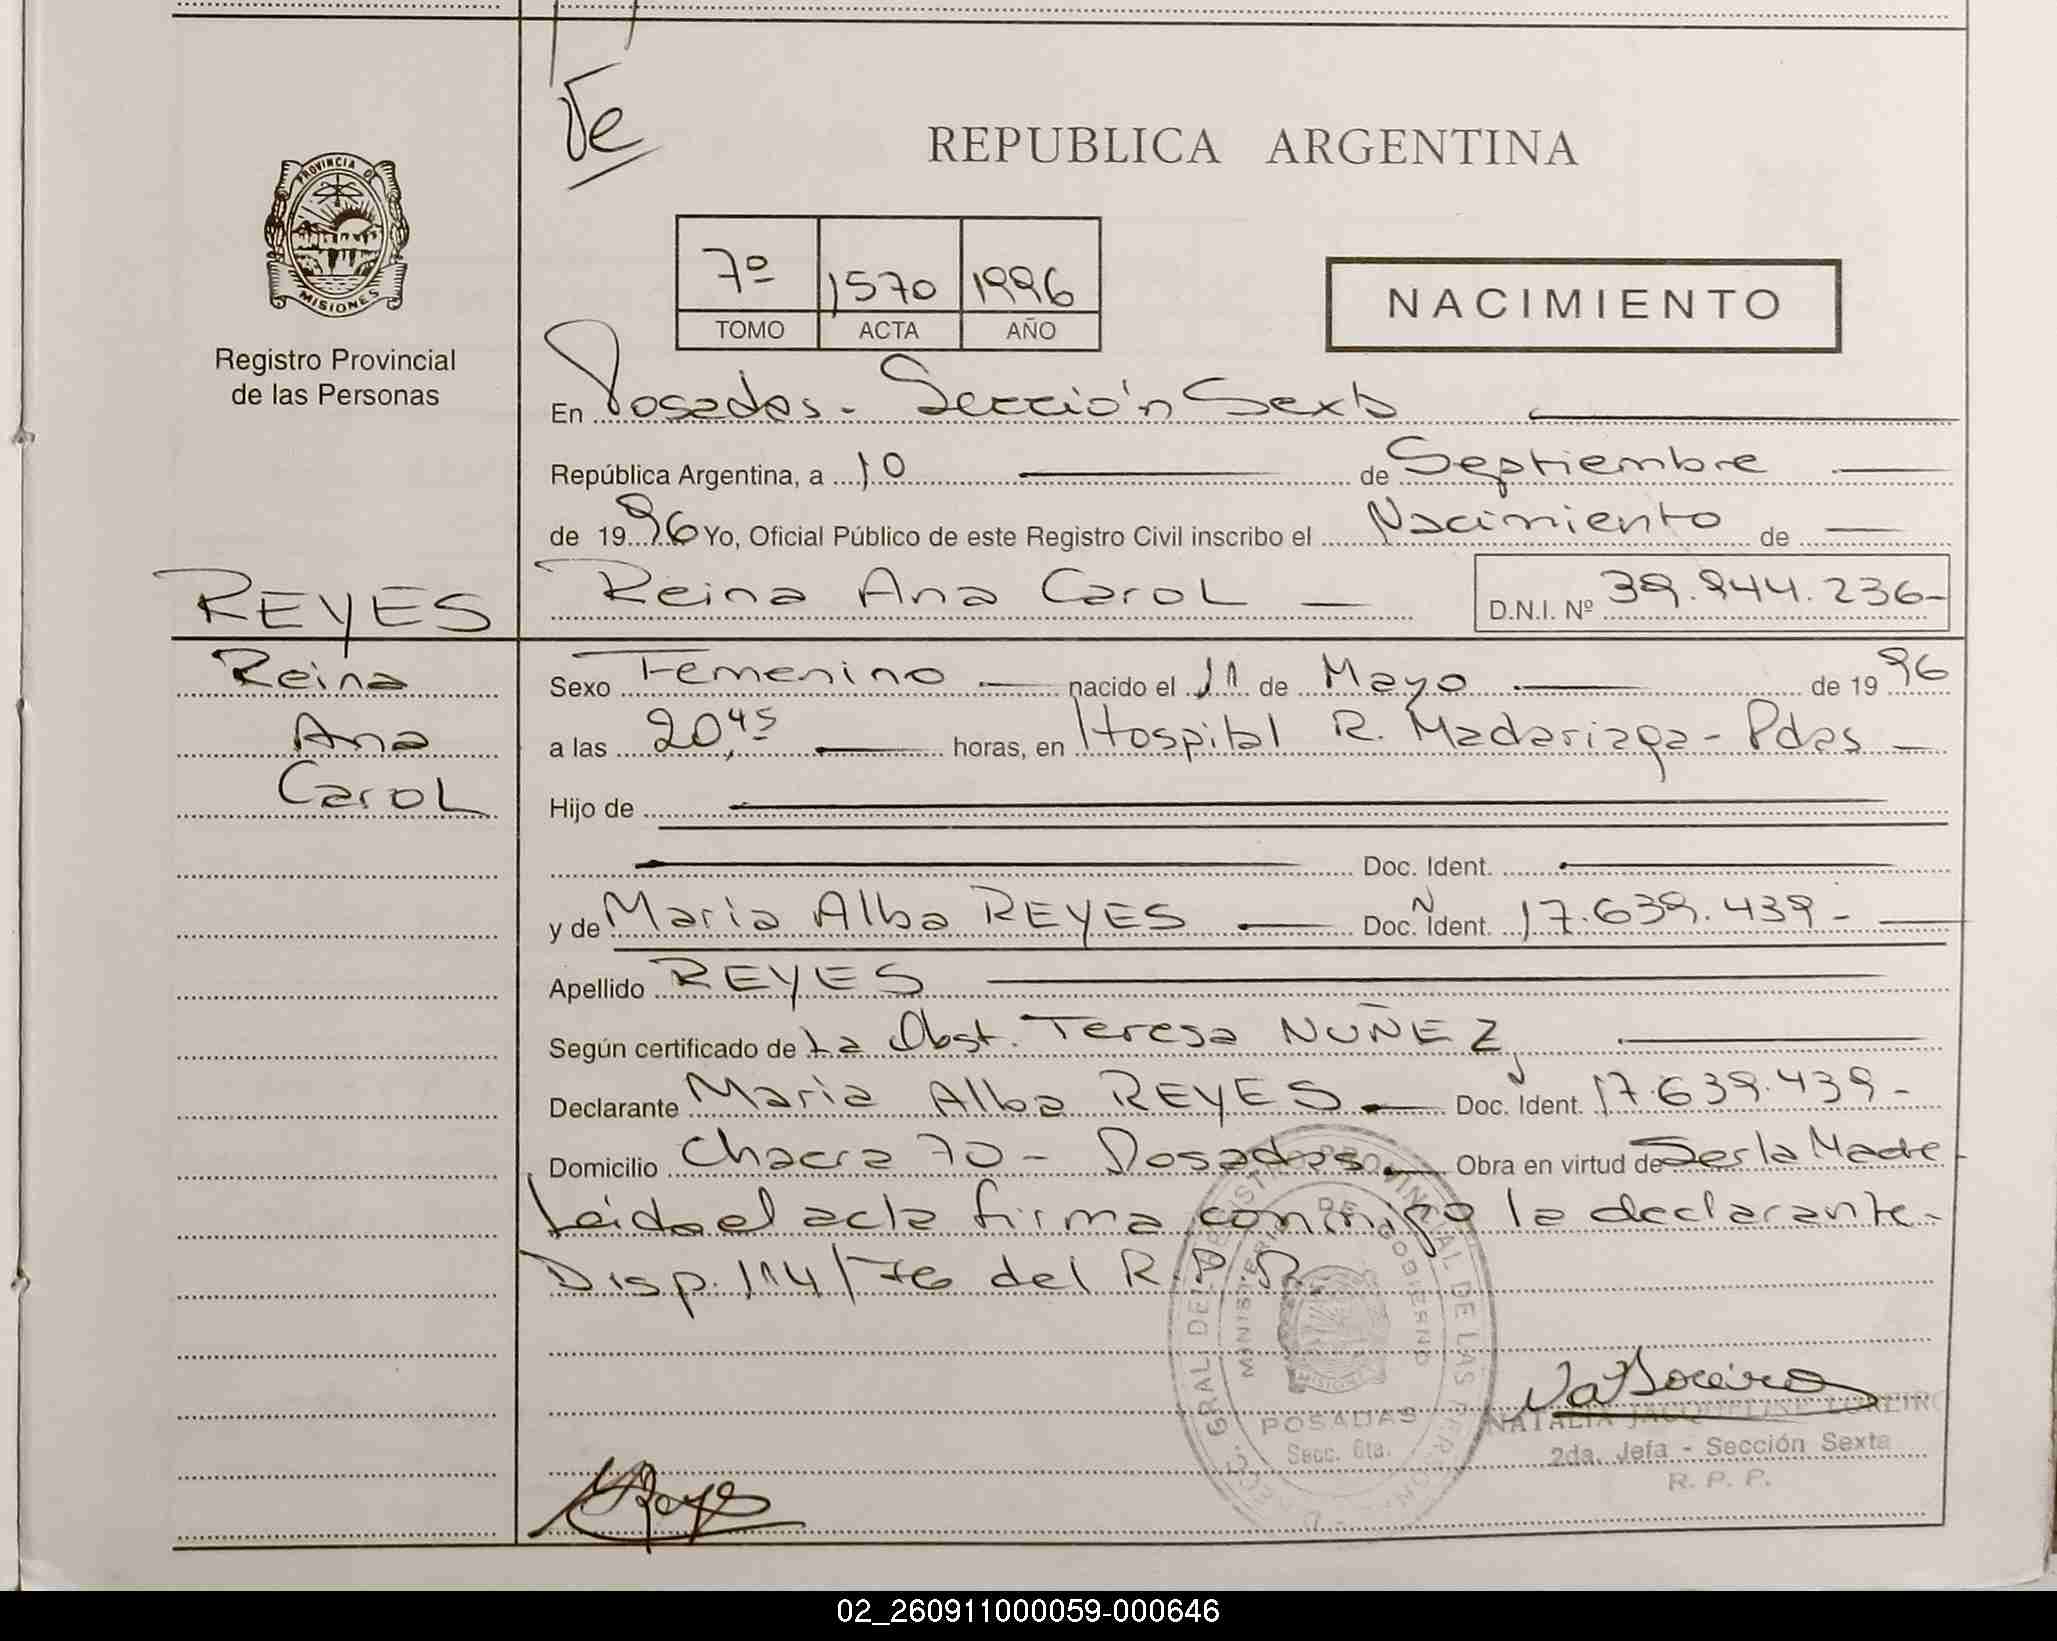 Ve
REPUBLICA ARGENTINA
PROVINCIA DE
MISIONES
Registro Provincial
de las Personas
7º 1570 1996
TOMO ACTA AÑO
NACIMIENTO
En Posadas - Sección Sexta
República Argentina, a 10 de Septiembre
de 1996 Yo, Oficial Público de este Registro Civil inscribo el Nacimiento de
REYES Reina Ana Carol D.N.I. Nº 39.944.236-
Reina
Ana
Carol
Sexo Femenino nacido el 11 de Mayo de 1996
a las 20,45 horas, en Hospital R. Madariaga - Pdas
Hijo de
Doc. Ident.
y de Maria Alba REYES Doc. Ident. 17.639.439-
Apellido REYES
Según certificado de La Obst. Teresa NUÑEZ
Declarante Maria Alba REYES Doc. Ident. 17.639.439-
Domicilio Chacra 70 - Posadas Obra en virtud de Ser la Madre
Leida el acta firma conmigo la declarante-
Disp. 114/76 del R.P.P.
MINISTERIO DE GOBIERNO
POSADAS
Secc. 6ta.
NATALIA JACQUELINE LOREIRO
2da. Jefa - Sección Sexta
R. P. P.
Reyes
02_260911000059-000646